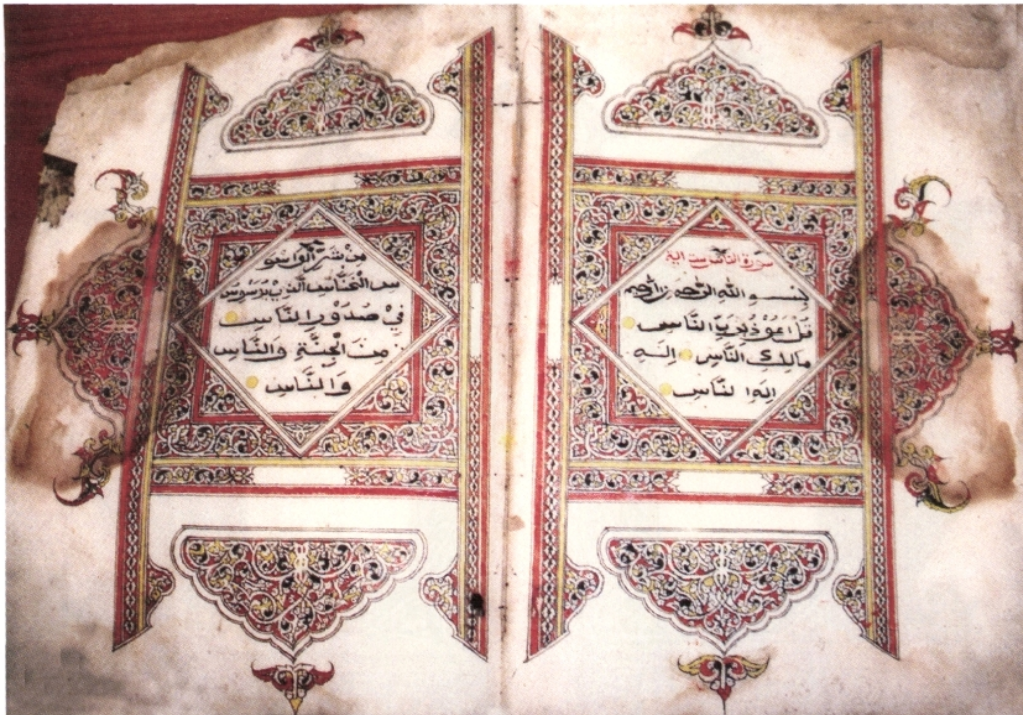 سورة الناس ست اية
بسم الله الرحمن الرحيم
قُلْ اَعُوْذُ بِرَبِّ النَّاسِ
مَالِكِ النَّاسِ اِلَهِ
اِلَهِ النَّاسِ
مِنْ شَرِّ الْوَاسو
س الْخَنَّاسِ الَّذِي يُوَسْوِسُ
فِيْ صُدُوْرِ النَّاسِ
مِنَ الْجِنَّةِ وَالنَّاسِ
وَالنَّاسِ